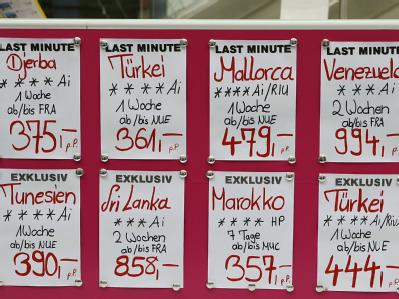 LAST MINUTE
Djerba
**** Ai
1 Woche
ab/bis FRA
375,- p.P.
LAST MINUTE
Türkei
**** Ai
1 Woche
ab/bis NUE
361,- p.P.
LAST MINUTE
Mallorca
**** Ai/RIU
1 Woche
ab/bis NUE
479,- p.P.
LAST MINUTE
Venezuela
*** Ai
2 Wochen
ab/bis FRA
994,- p.P.
EXKLUSIV
Tunesien
**** Ai
1 Woche
ab/bis NUE
390,- p.P.
EXKLUSIV
Sri Lanka
**** Ai
2 Wochen
ab/bis FRA
858,- p.P.
EXKLUSIV
Marokko
**** HP
7 Tage
ab/bis MUC
357,- p.P.
EXKLUSIV
Türkei
**** Ai/Riu
1 Woche
ab/bis NUE
444,- p.P.